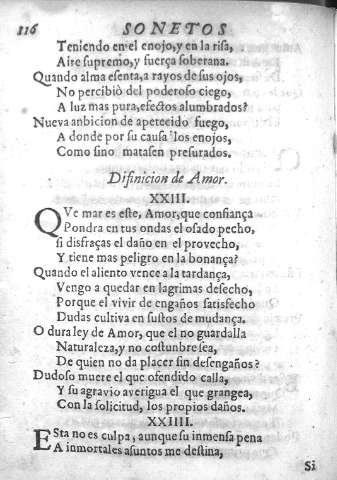 116 SONETOS
Teniendo en el enojo, y en la risa,
Aire supremo, y fuerça soberana.
Quando alma esenta, a rayos de sus ojos,
No percibiò del poderoso ciego,
A luz mas pura, efectos alumbrados?
Nueva anbicion de apetecido fuego,
A donde por su causa los enojos,
Como sino matasen presurados.
Difinicion de Amor.
XXIII.
QVe mar es este, Amor, que confiança
Pondra en tus ondas el osado pecho,
si disfraças el daño en el provecho,
Y tiene mas peligro en la bonança?
Quando el aliento vence a la tardança,
Vengo a quedar en lagrimas desecho,
Porque el vivir de engaños satisfecho
Dudas cultiva en sustos de mudança.
O dura ley de Amor, que el no guardalla
Naturaleza, y no costunbre sea,
De quien no da placer sin desengaños?
Dudoso muere el que ofendido calla,
Y su agravio averigua el que grangea,
Con la solicitud, los propios daños.
XXIIII.
ESta no es culpa, aunque su inmensa pena
A inmortales asuntos me destina,
Si